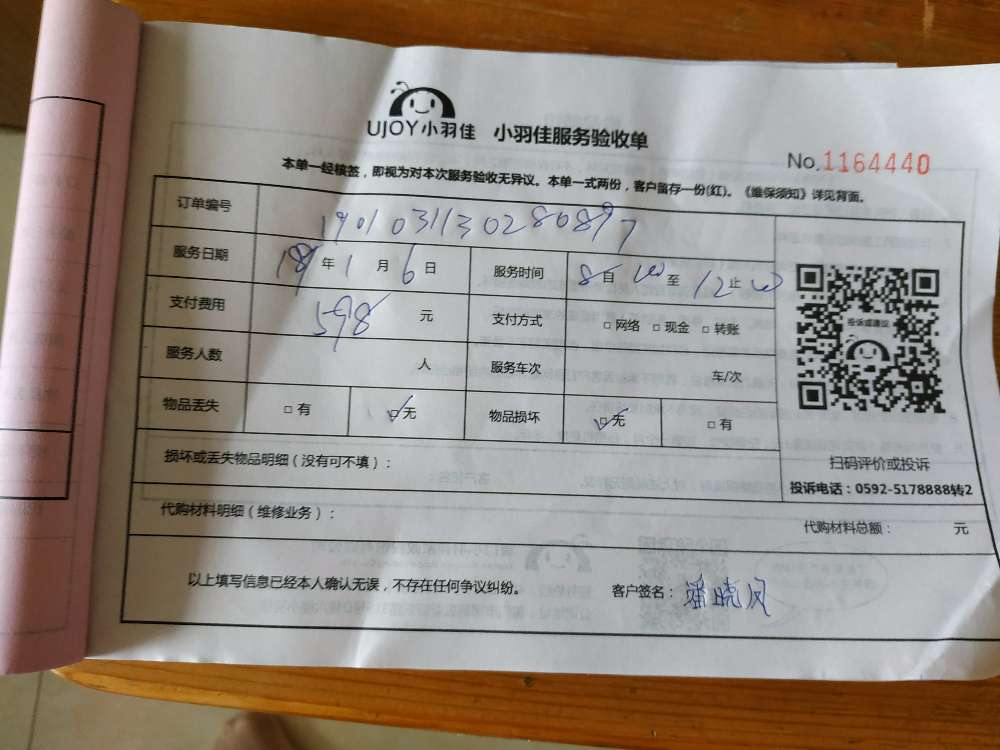 UJOY小羽佳 小羽佳服务验收单
No.1164440
本单一经核签，即视为对本次服务验收无异议。本单一式两份，客户留存一份(红)。《维保须知》详见背面。
订单编号 1901031130280897
服务日期 19年1月6日 服务时间 8自00至12止00
支付费用 598元 支付方式 □网络 □现金 □转账
投诉或建议
服务人数 人 服务车次 车/次
物品丢失 □有 ☑无 物品损坏 ☑无 □有
扫码评价或投诉
损坏或丢失物品明细（没有可不填）：
投诉电话：0592-5178888转2
代购材料明细（维修业务）： 代购材料总额： 元
以上填写信息已经本人确认无误，不存在任何争议纠纷。 客户签名：潘晓凤